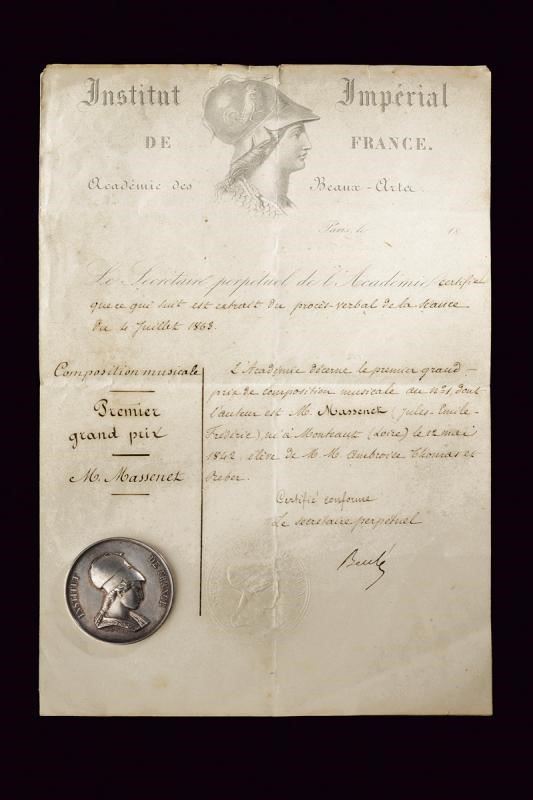 Institut Impérial
DE FRANCE.
Académie des Beaux-Arts.
Paris, le 18
Le Secrétaire perpétuel de l'Académie certifie
que ce qui suit est extrait du procès-verbal de la séance
du 4 Juillet 1863.
Composition musicale
Premier
grand prix
M. Massenet
L'Académie décerne le premier grand
prix de composition musicale au nº 1, dont
l'auteur est M. Massenet (Jules-Emile-
Frédéric), né à Montaut (Loire) le 12 mai
1842, élève de M. M. Ambroise Thomas et
Reber.
Certifié conforme
Le secrétaire perpétuel
Beulé
INSTITUT DE FRANCE